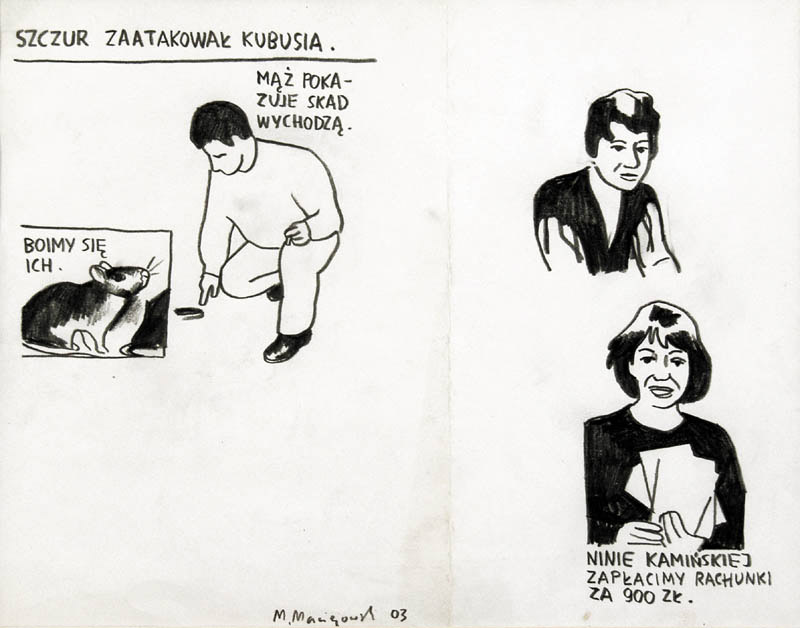 SZCZUR ZAATAKOWAŁ KUBUSIA.
MĄŻ POKA-
ZUJE SKAD
WYCHODZĄ.
BOIMY SIĘ
ICH.
NINIE KAMIŃSKIEJ
ZAPŁACIMY RACHUNKI
ZA 900 ZŁ.
M. 03